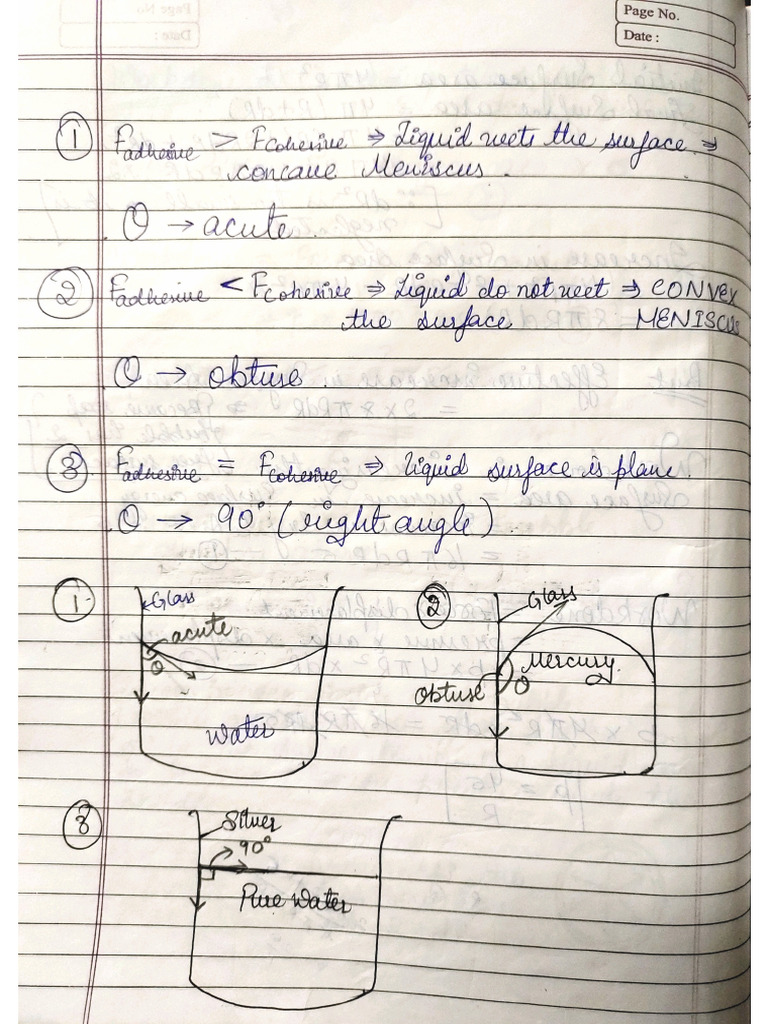 Page No.
Date :
① F adhesive > F cohesive ⇒ Liquid wets the surface ⇒
concave Meniscus.
θ → acute.
② F adhesive < F cohesive ⇒ Liquid do not wet ⇒ CONVEX
the surface MENISCUS
θ → obtuse.
③ F adhesive = F cohesive ⇒ liquid surface is plane.
θ → 90° (right angle)
① Glass
acute
θ
water
② Glass
Mercury
θ
obtuse
③ Silver
90°
Pure water